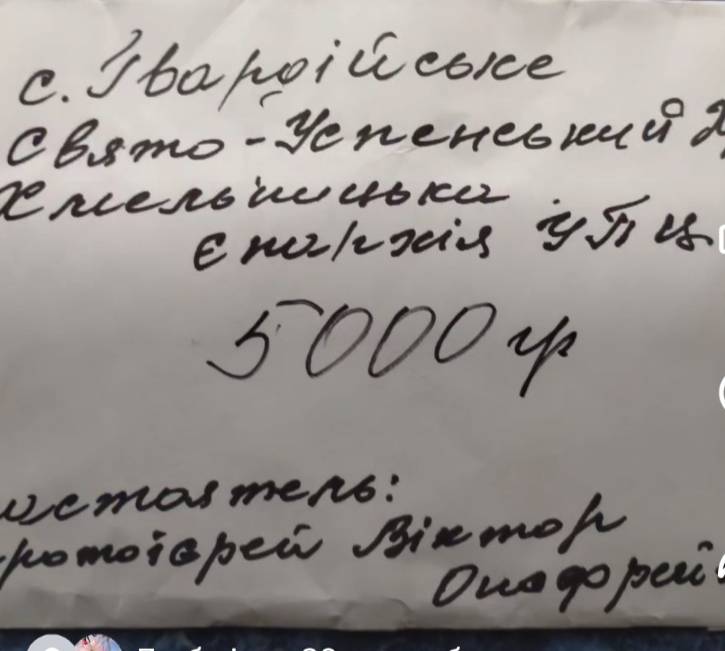 с. Гвардійське
Свято-Успенський
Хмельницька
Єпархія УПЦ
5000 гр
настоятель:
протоієрей Віктор
Онофрей